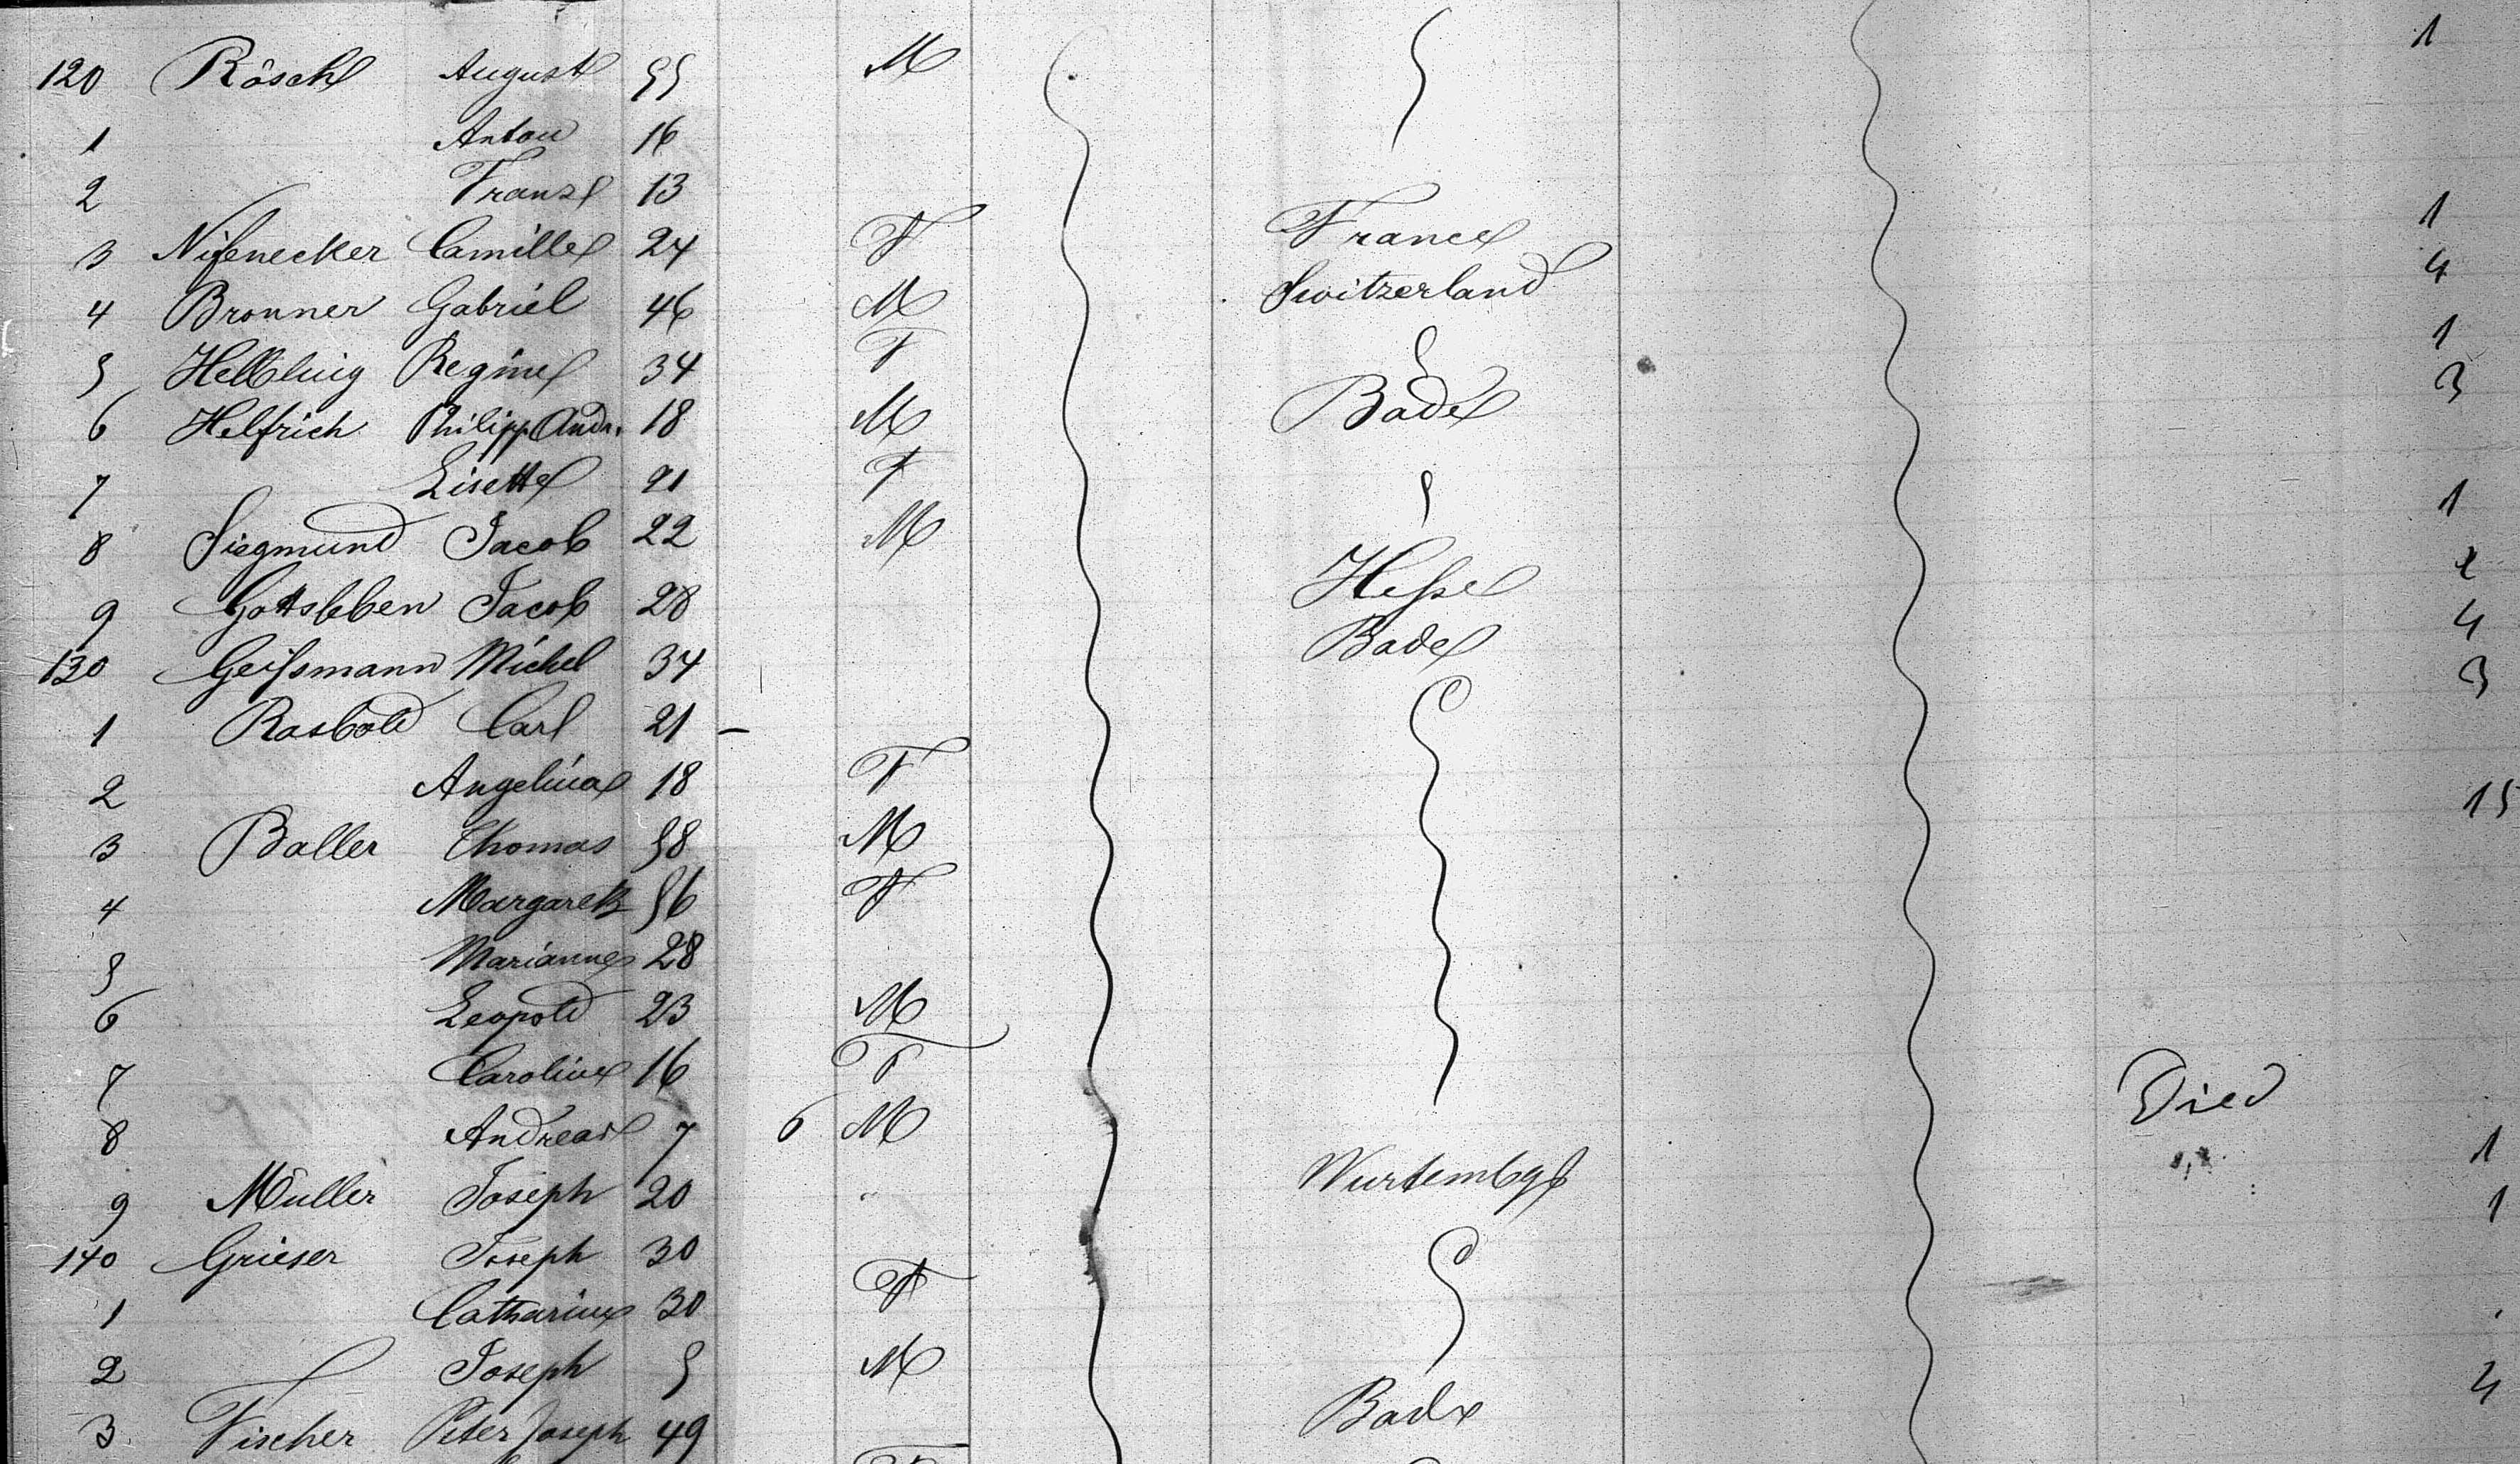 120 Rösch August 55 M 1
1 Anton 16
2 Franz 13
3 Nifenecker Camille 24 F France 1
4 Bronner Gabriel 46 M Switzerland 4
5 Helbling Regine 34 F 1
6 Helfrich Philipp Andr. 18 M Bade 3
7 Lisette 21 F
8 Siegmund Jacob 22 M 1
9 Gottsleben Jacob 28 Hesse
130 Geissmann Michel 34 Bade 4
1 Rasbold Carl 21 – 3
2 Angelina 18 F
3 Baller Thomas 58 M 15
4 Margareth 56 F
5 Marianne 28
6 Leopold 23 M
7 Caroline 16 F
8 Andreas 7 6 M Died
9 Müller Joseph 20 " Wurtembg 1
140 Grieser Joseph 30 1
1 Catharine 30 F
2 Joseph 5 M
3 Fischer Peter Joseph 49 Bade 4